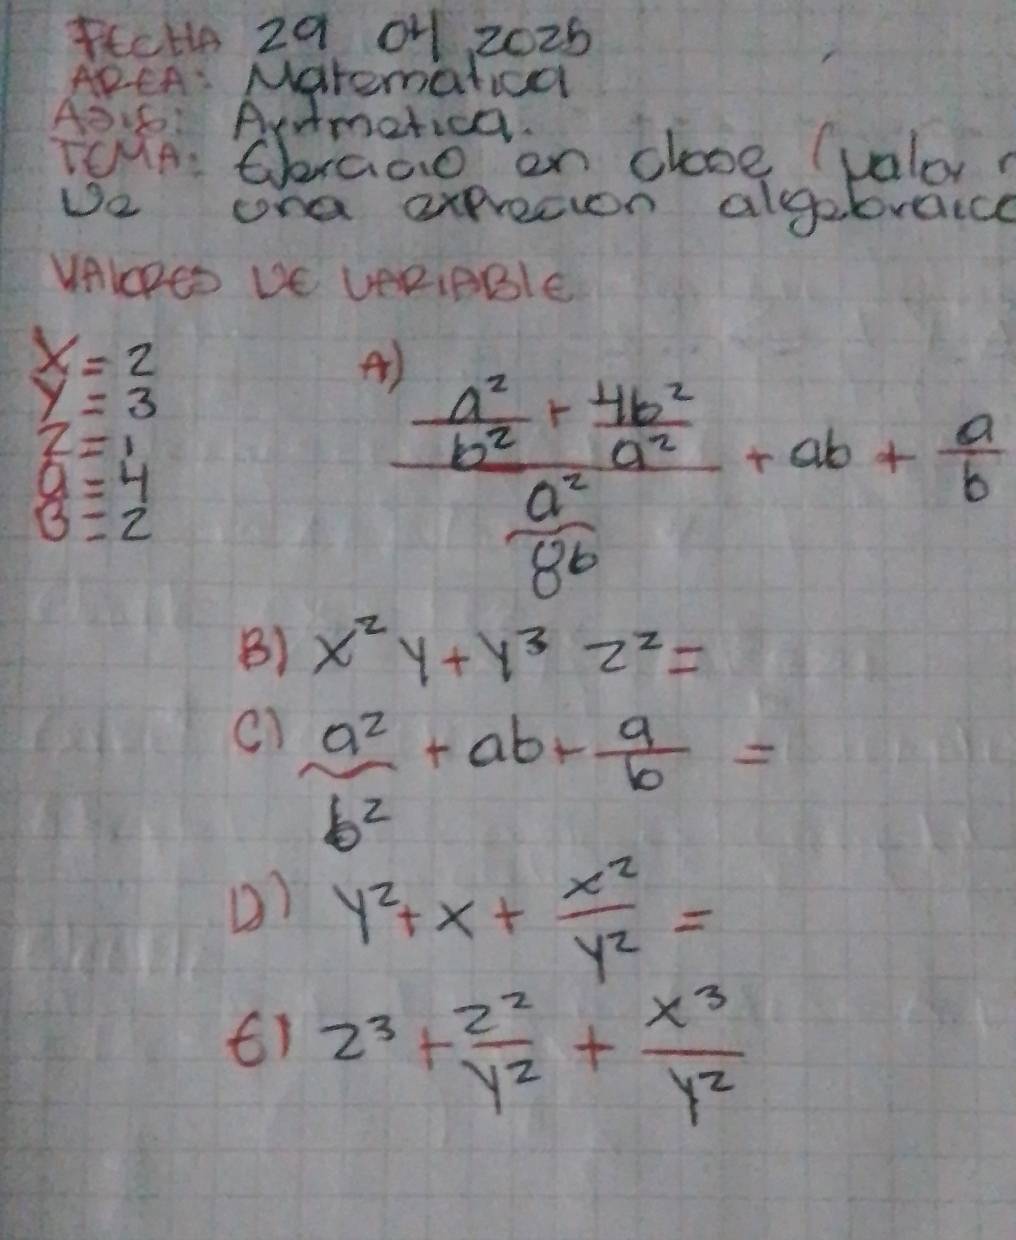 FECHA 29 04 2025
AREA: Matematica
ASIG: Aritmetica.
TEMA: Ejercicio en clase (valor
De una exprecion algebraica
VALORES DE VARIABLE
X = 2
Y = 3
Z = 1
a = 4
B = 2
A) (a²/b² + 4b²/a²)/(a²/8b) + ab + a/b
B) x² y + y³ z² =
C) a²/b² + ab + a/b =
D) y² + x + x²/y² =
E) z³ + z²/y² + x³/y²